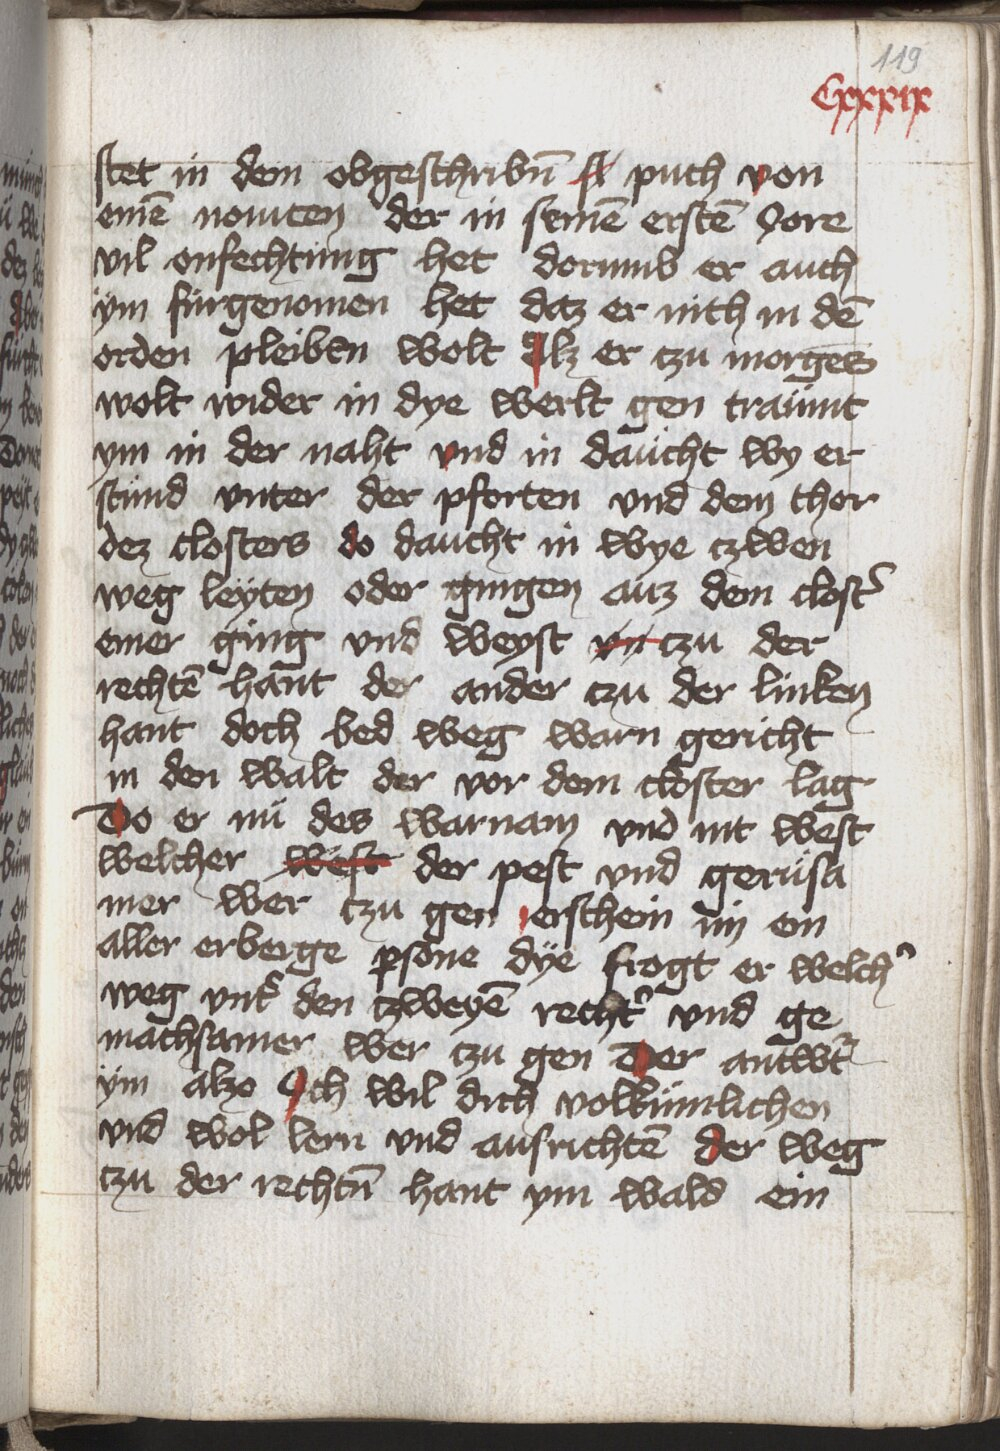 119
Cxxxix
stet in dem obgeschribn̄ puch von
einē nouicen der in seinē erstē Jore
vil onfechtung het dorumb er auch
ÿm fürgenomen het daz er nith in dē
orden pleiben wolt Alz er czu morges
wolt wider in dye werlt gen traümt
ym in der naht vnd in daücht wy er
stünd vnter der pforten vnd dem thor
dez closters do daucht in wye czwen
weg leÿten oder gingen auz dem clost̉
einer ging vnd weyst yn czu der
rechtē hant der ander czu der linken
hant doch bed weg warn gericht
in den walt der vor dem closter lag
Do er nü des warnam vnd nit west
welcher west der pest vnd gerüsa
mer wer czu gen erschein im ein
aller erberge ꝑsone dÿe frogt er welch̉
weg vnt̉ den czweyē recht̉ vnd ge
machsamer wer czu gen Der antwt̉
ÿm alzo Jch wil dich volkümlichen
vnd wol lern vnd ausrichtē der weg
czu der rechtn̄ hant ym wald ein